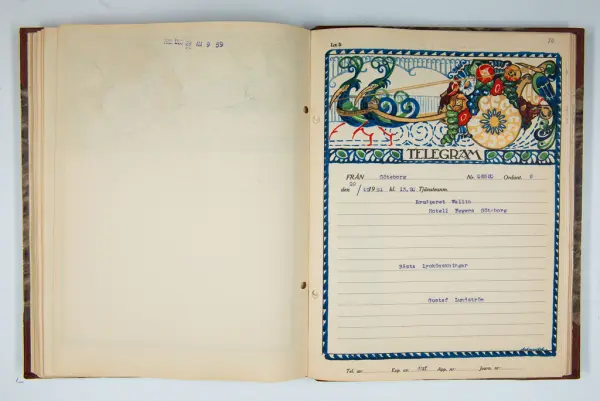 9 59
Lx 8
TELEGRAM
FRÅN Göteborg Nr. Ordant. 8
den 20/ 1931 kl. Tjänsteanm.
Brudparet Wallin
Hotell Eggers Göteborg
Bästa Lyckönskningar
Gustaf Lundström
Tel. nr Exp. nr App. nr Journ. nr